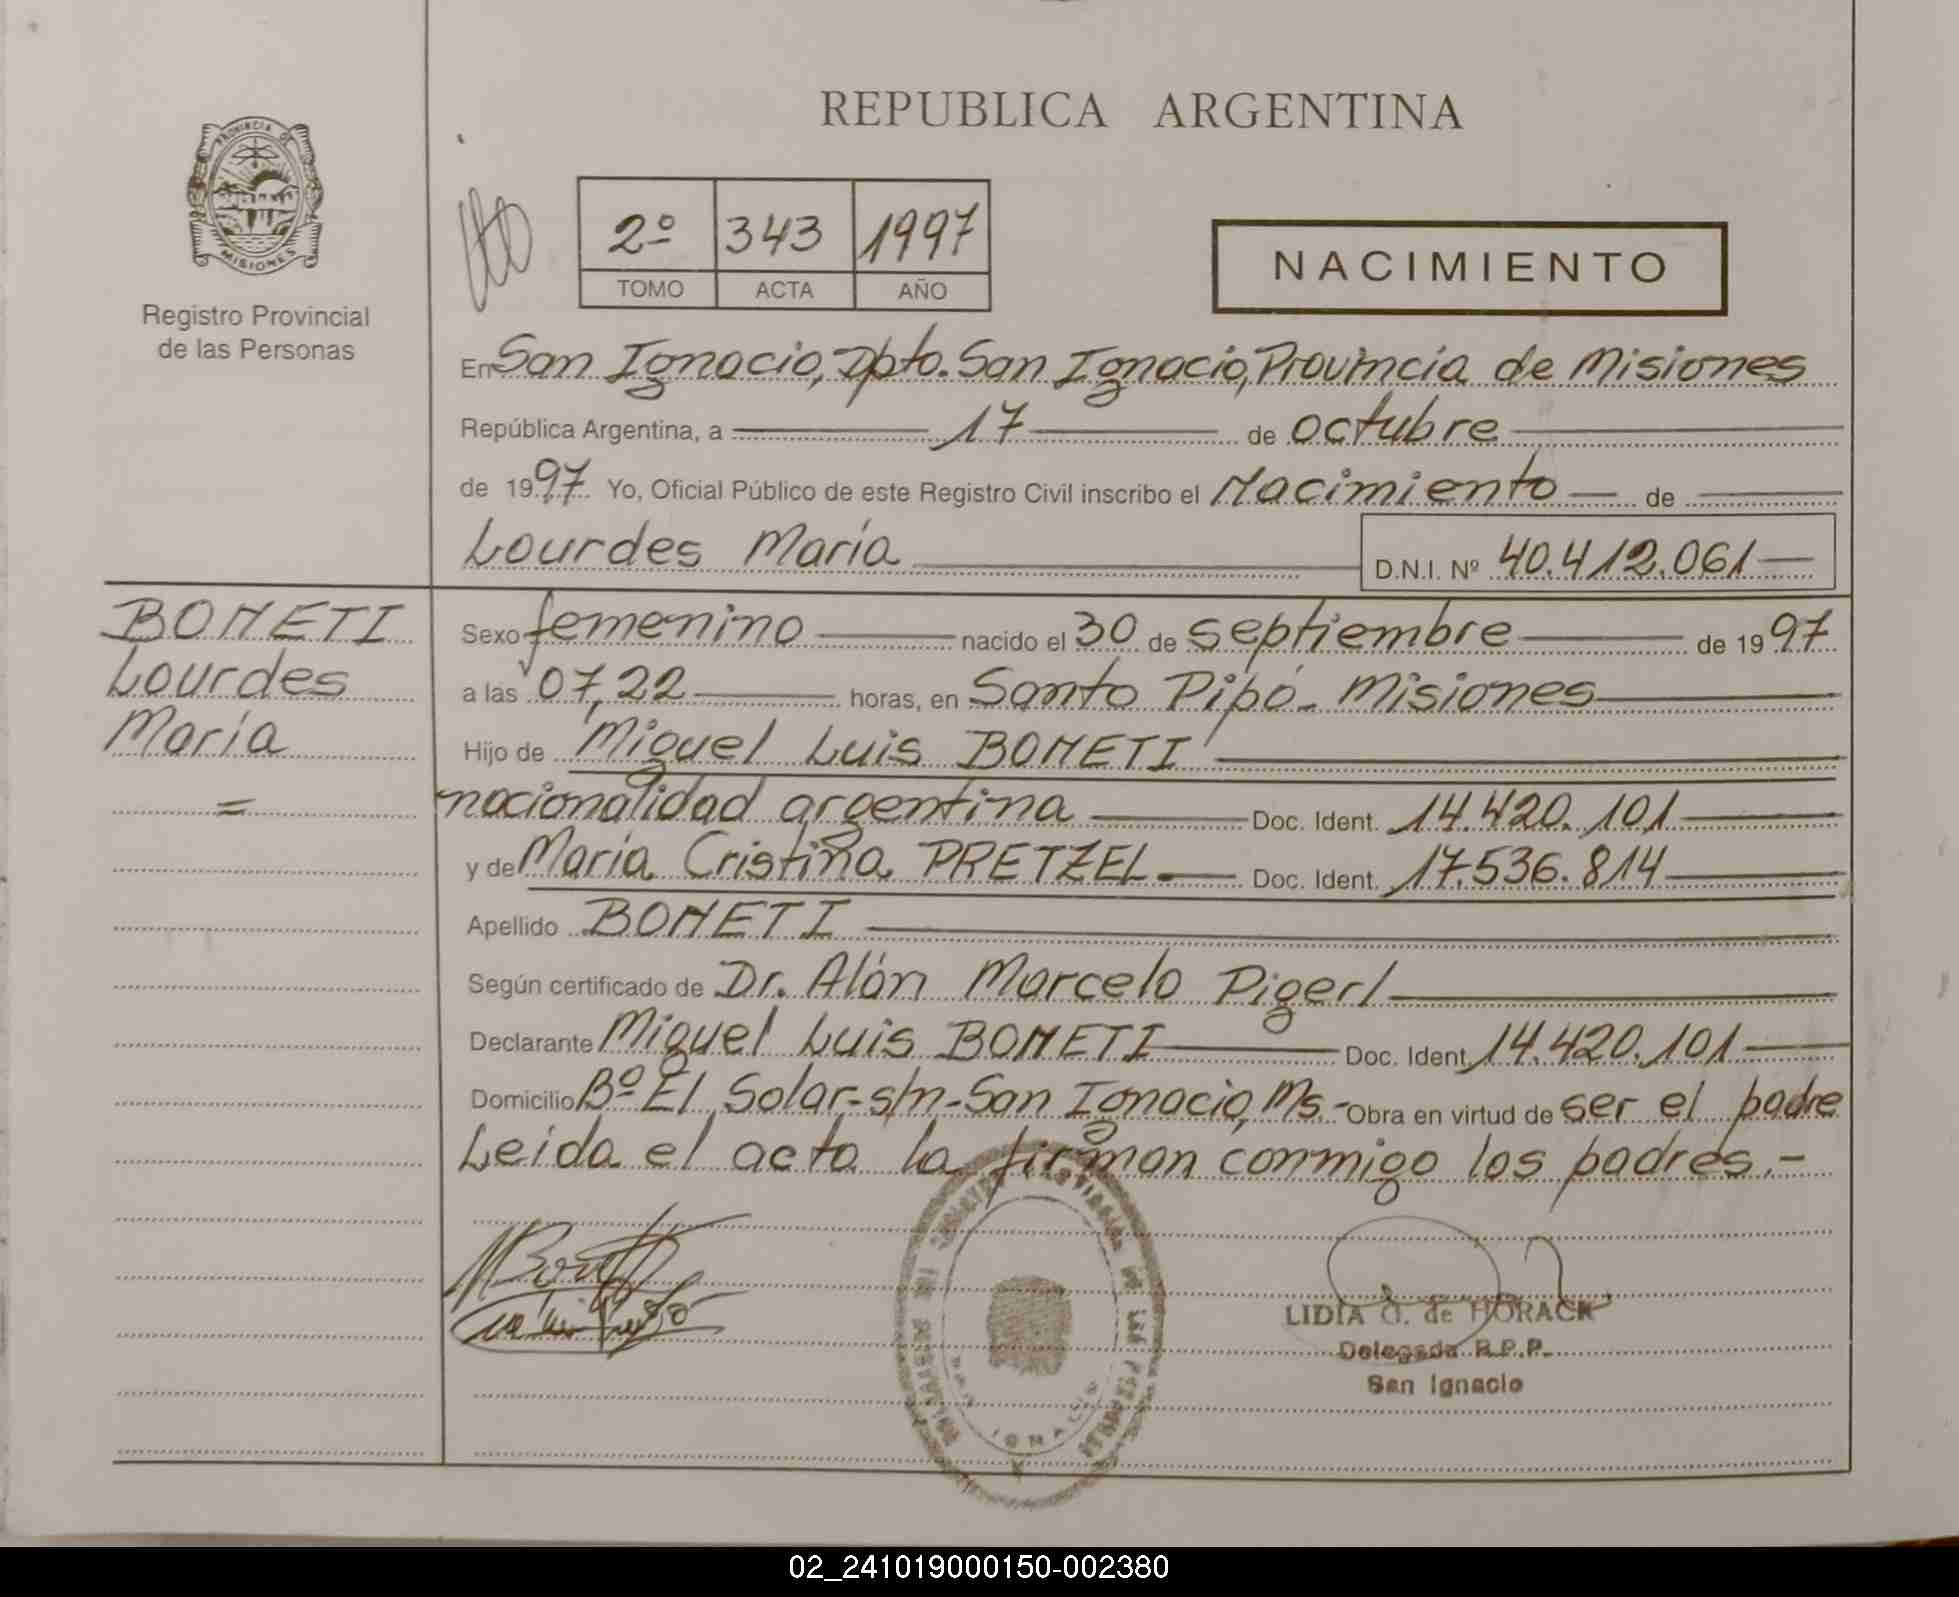 REPUBLICA ARGENTINA
PROVINCIA DE
MISIONES
Registro Provincial
de las Personas
2º 343 1997
TOMO ACTA AÑO
NACIMIENTO
En San Ignacio, Dpto. San Ignacio, Provincia de Misiones
República Argentina, a 17 de octubre
de 1997 Yo, Oficial Público de este Registro Civil inscribo el Nacimiento de
Lourdes María D.N.I. Nº 40.412.061
BONETI
Lourdes
María
=
Sexo femenino nacido el 30 de septiembre de 1997
a las 07,22 horas, en Santo Pipó - Misiones
Hijo de Miguel Luis BONETI
nacionalidad argentina Doc. Ident. 14.420.101
y de María Cristina PRETZEL Doc. Ident. 17.536.814
Apellido BONETI
Según certificado de Dr. Alán Marcelo Pigerl
Declarante Miguel Luis BONETI Doc. Ident. 14.420.101
Domicilio Bº El Solar-s/n-San Ignacio, Ms.- Obra en virtud de ser el padre
Leída el acta la firman conmigo los padres.-
LIDIA O. de HORACK
Delegada R.P.P.
San Ignacio
SAN IGNACIO
02_241019000150-002380